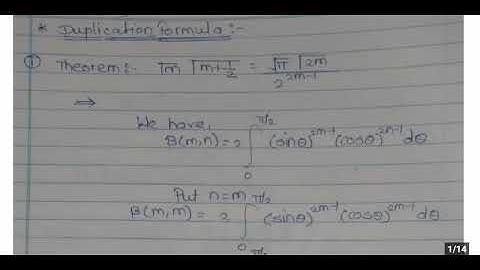 * Duplication formula:-
① Theorem:- Γm Γm+1/2 = √π Γ2m / 2^(2m-1)
⇒
We have,
B(m,n) = 2 ∫₀^(π/2) (sinθ)^(2m-1) (cosθ)^(2m-1) dθ
Put n=m
B(m,m) = 2 ∫₀^(π/2) (sinθ)^(2m-1) (cosθ)^(2m-1) dθ
π/2
1/14